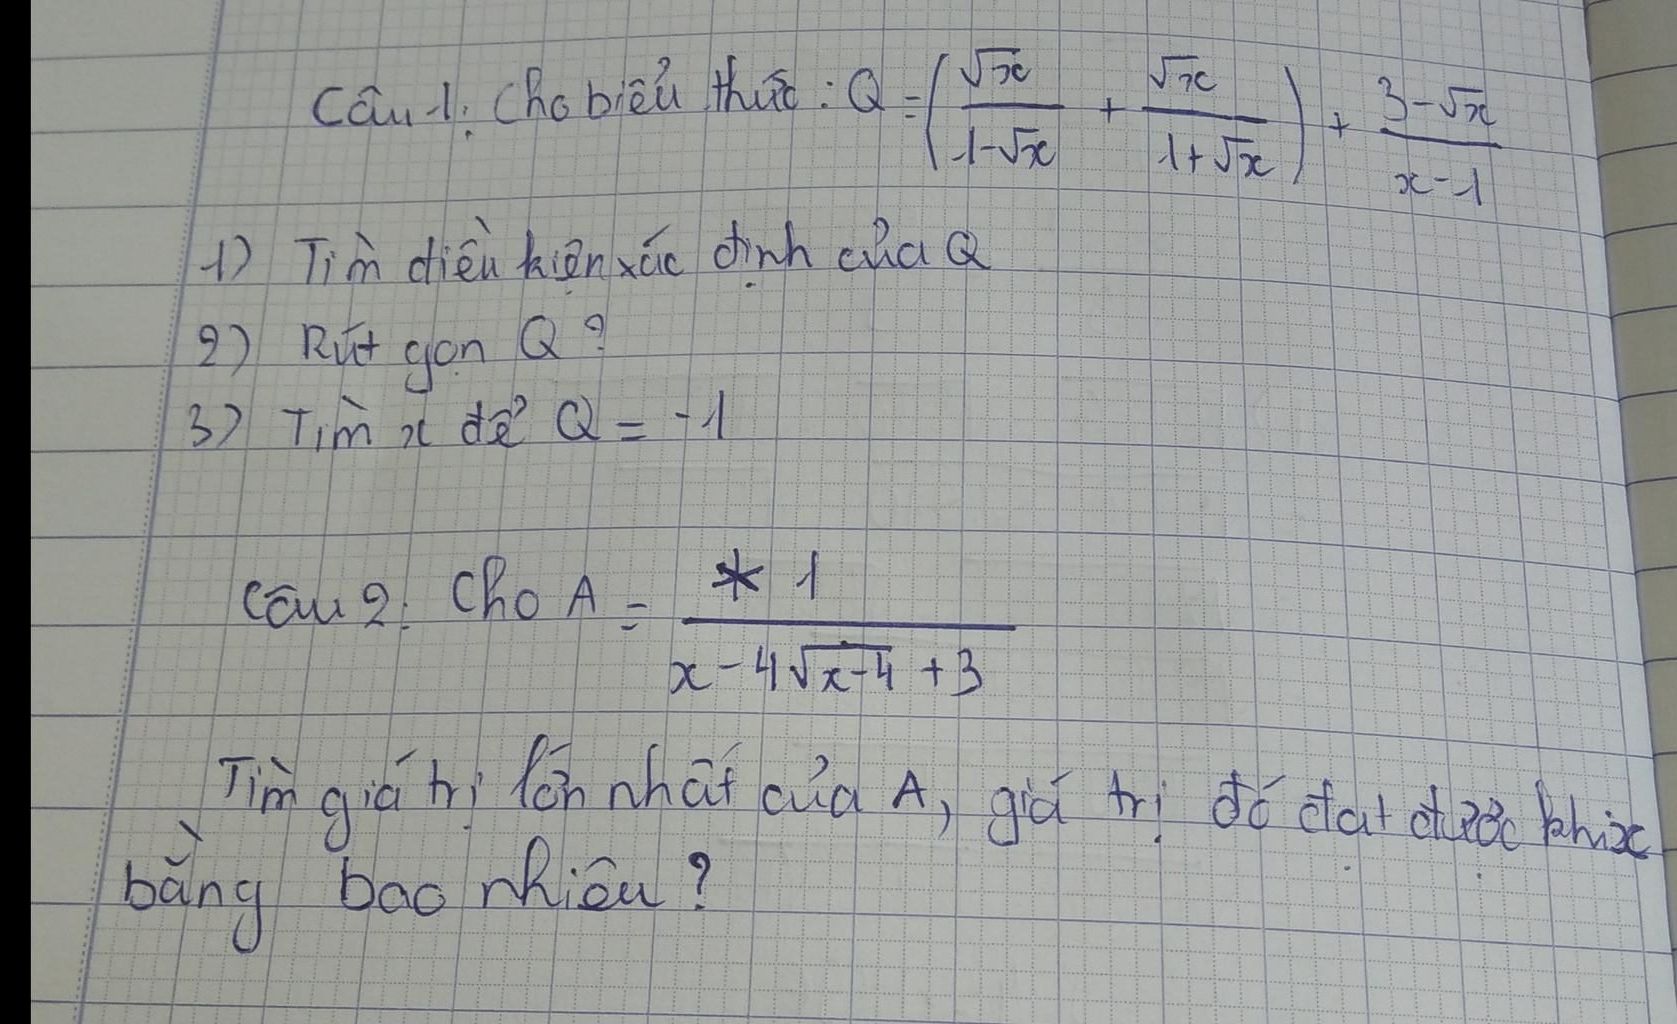 Câu 1: Cho biểu thức: Q = (√x/(1-√x) + √x/(1+√x)) + (3-√x)/(x-1)
1) Tìm điều kiện xác định của Q
2) Rút gọn Q?
3) Tìm x để Q = -1
Câu 2: Cho A = * 1/(x-4√(x-4)+3)
Tìm giá trị lớn nhất của A, giá trị đó đạt được khi x
bằng bao nhiêu?